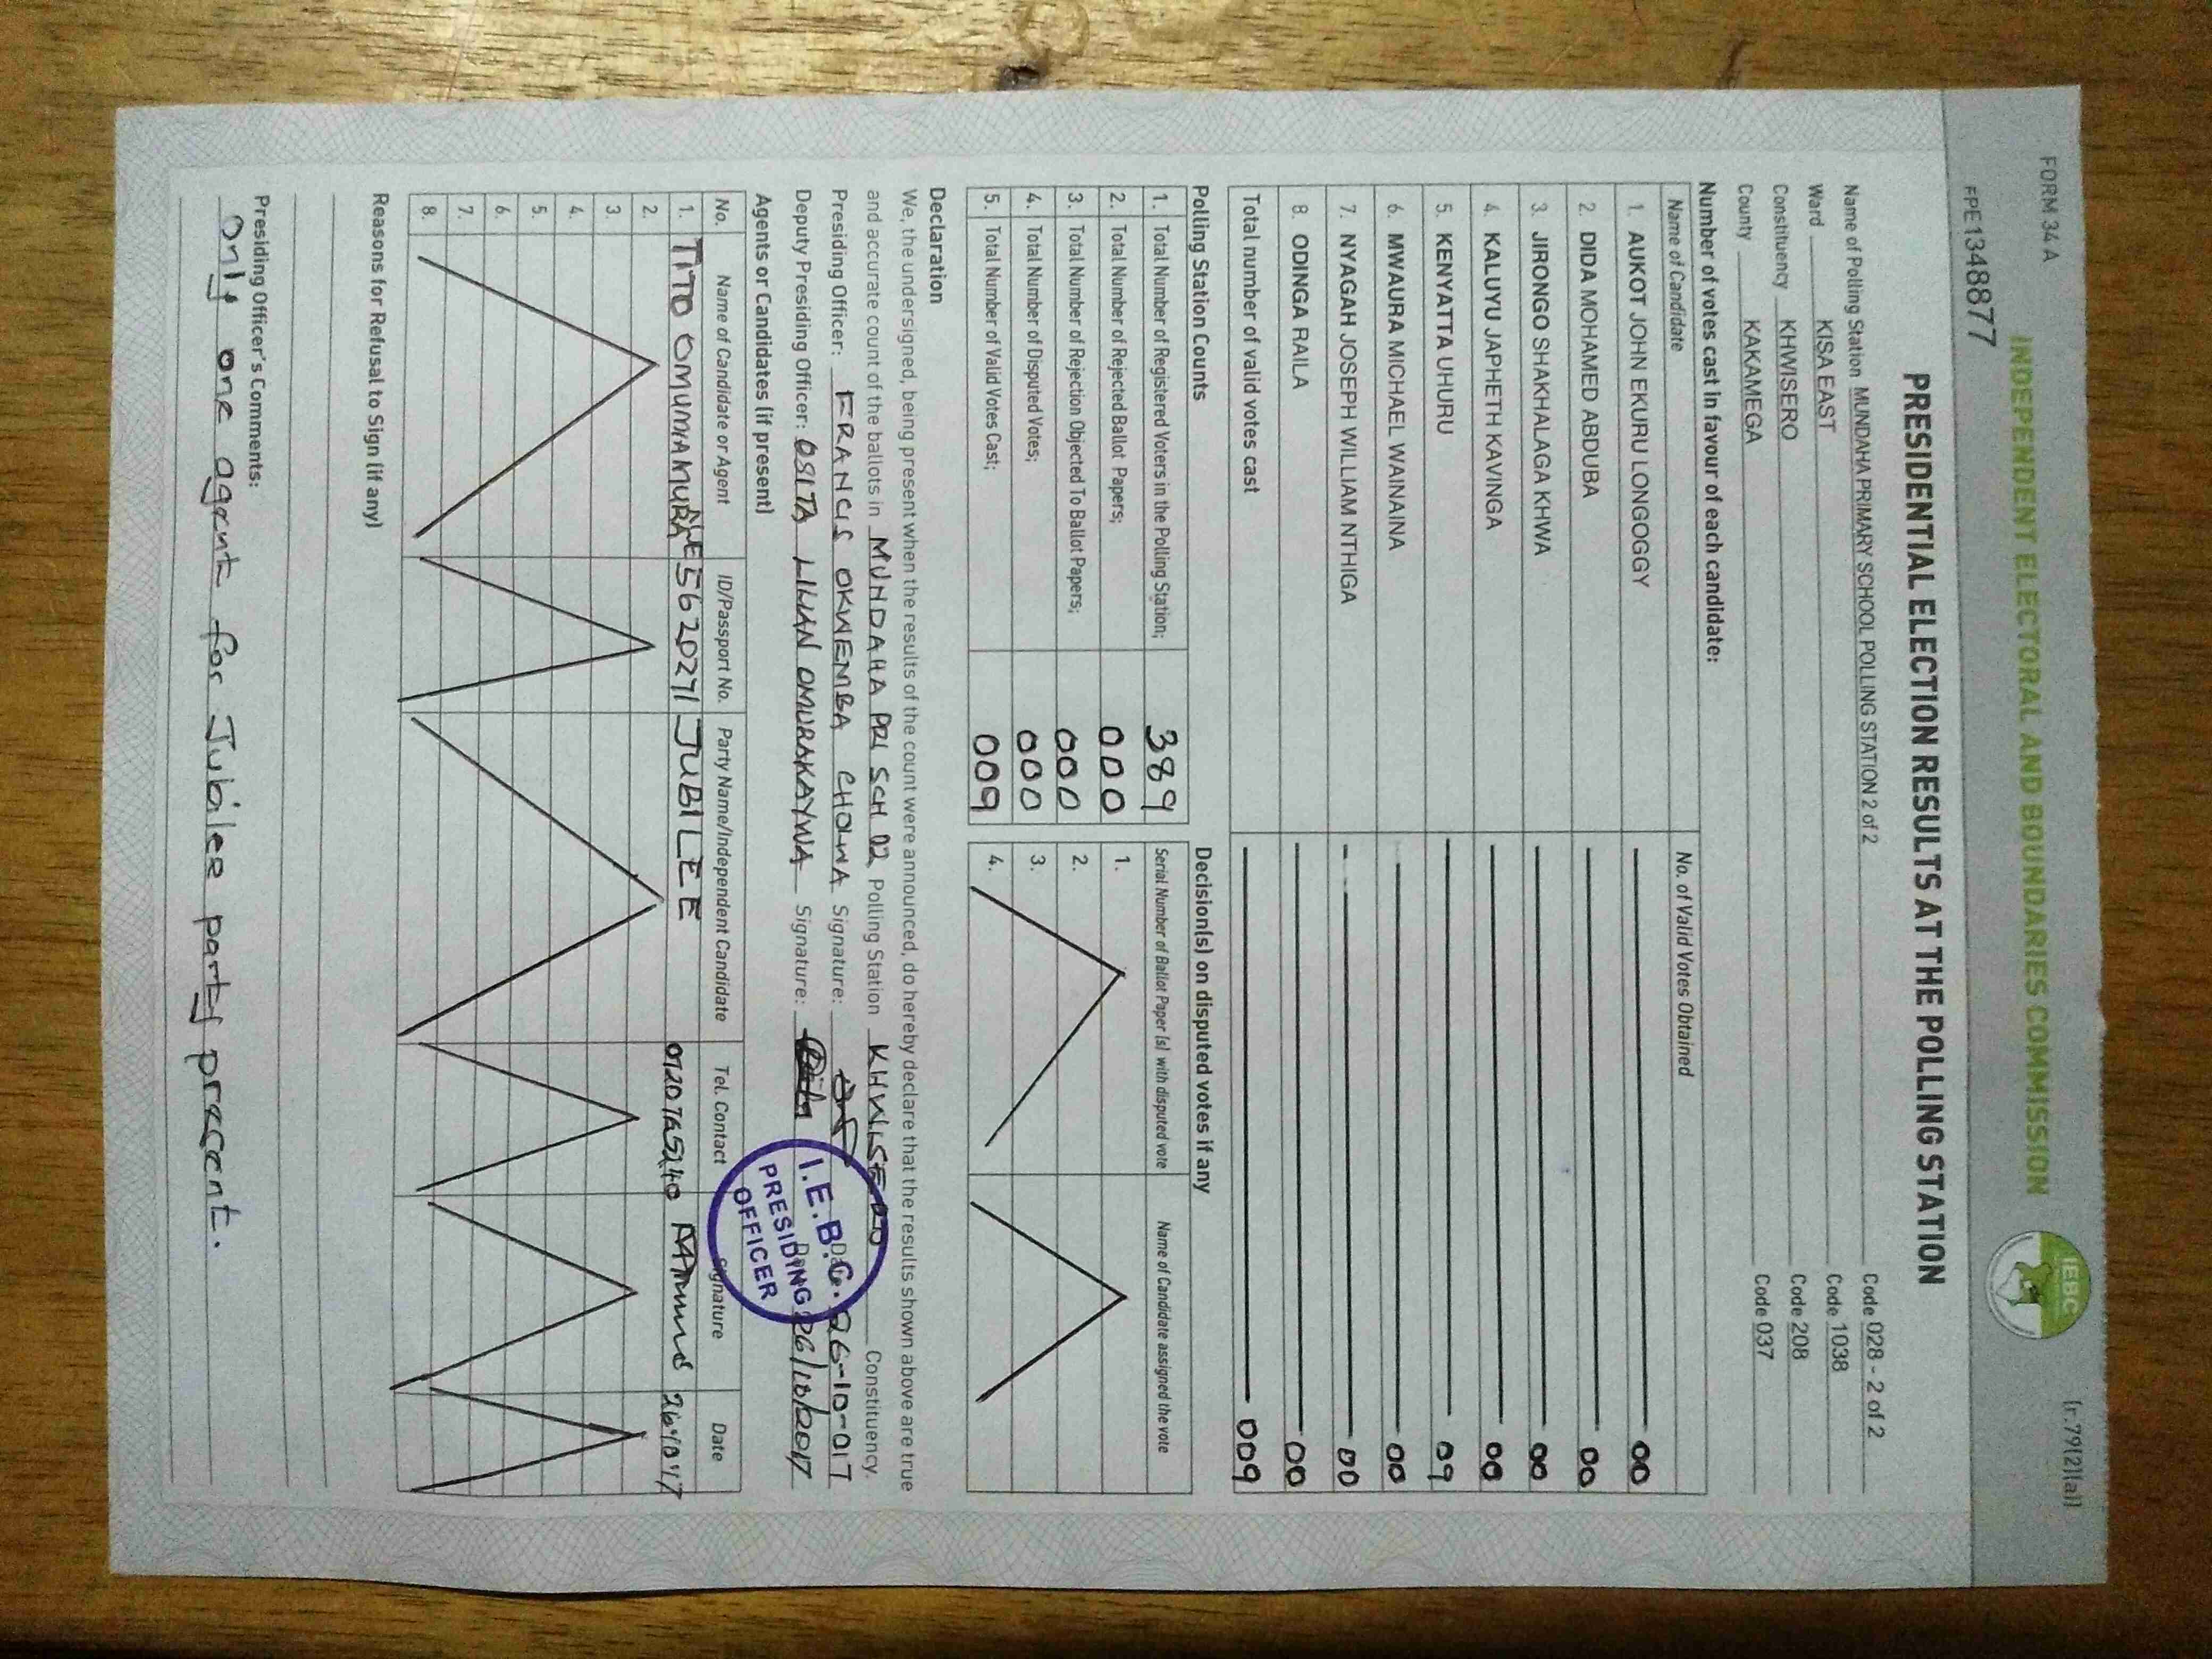 FORM 34 A
[r.79(2)(a)]
INDEPENDENT ELECTORAL AND BOUNDARIES COMMISSION
IEBC
FPE1348877
PRESIDENTIAL ELECTION RESULTS AT THE POLLING STATION
Name of Polling Station MUNDAHA PRIMARY SCHOOL POLLING STATION 2 of 2 Code 028 - 2 of 2
Ward KISA EAST Code 1038
Constituency KHWISERO Code 208
County KAKAMEGA Code 037
Number of votes cast in favour of each candidate:
Name of Candidate No. of Valid Votes Obtained
1. AUKOT JOHN EKURU LONGOGGY 00
2. DIDA MOHAMED ABDUBA 00
3. JIRONGO SHAKHALAGA KHWA 00
4. KALUYU JAPHETH KAVINGA 00
5. KENYATTA UHURU 09
6. MWAURA MICHAEL WAINAINA 00
7. NYAGAH JOSEPH WILLIAM NTHIGA 00
8. ODINGA RAILA 00
Total number of valid votes cast 009
Polling Station Counts
1. Total Number of Registered Voters in the Polling Station; 389
2. Total Number of Rejected Ballot Papers; 000
3. Total Number of Rejection Objected To Ballot Papers; 000
4. Total Number of Disputed Votes; 000
5. Total Number of Valid Votes Cast; 009
Decision(s) on disputed votes if any
Serial Number of Ballot Paper (s) with disputed vote Name of Candidate assigned the vote
1.
2.
3.
4.
Declaration
We, the undersigned, being present when the results of the count were announced, do hereby declare that the results shown above are true
and accurate count of the ballots in MUNDAHA PRI SCH 02 Polling Station KHWISERO Constituency.
Presiding Officer: FRANCIS OKWEMBA CHOLWA Signature: Date: 26-10-017
Deputy Presiding Officer: OSITA LILIAN OMURAKAYWA Signature: Date: 26/10/2017
I.E.B.C.
PRESIDING
OFFICER
Agents or Candidates (if present)
No. Name of Candidate or Agent ID/Passport No. Party Name/Independent Candidate Tel. Contact Signature Date
1. TITO 5620271 JUBILEE
2.
3.
4.
5.
6.
7.
8.
Reasons for Refusal to Sign (if any)
Presiding Officer's Comments:
Only one agent for Jubilee party precent.